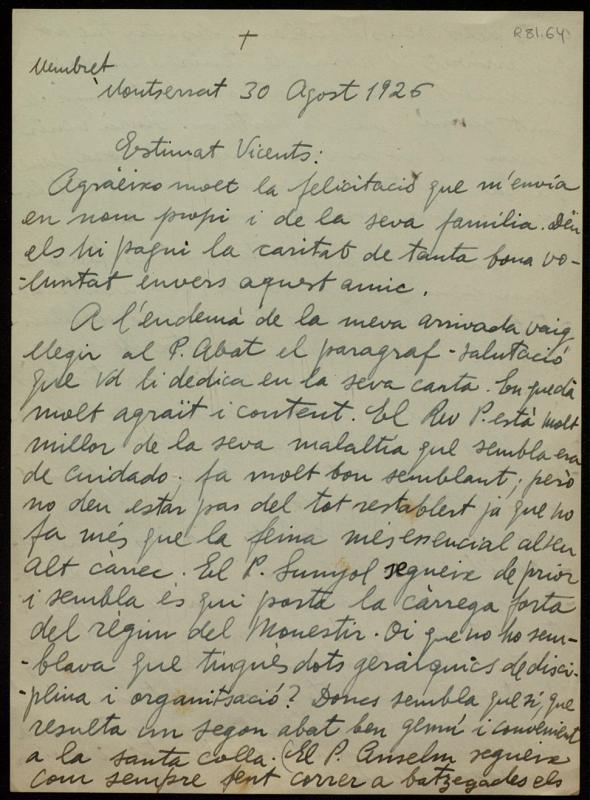 +
R81.64
Membret
Montserrat 30 Agost 1926
Estimat Vicents:
Agraeixo molt la felicitació que m'envía
en nom propi i de la seva família. Déu
els hi pagui la caritat de tanta bona vo-
-luntat envers aquest amic.
A l'endemà de la meva arrivada vaig
llegir al P. Abat el paragraf-salutació
que Vd li dedica en la seva carta. En quedà
molt agraït i content. El Rev P. està molt
millor de la seva malaltía que sembla era
de cuidado; fa molt bon semblant; però
no deu estar pas del tot restablert ja que no
fa més que la feina més essencial al seu
alt càrrec. El P. Sunyol segueix de prior
i sembla és qui porta la càrrega forta
del règim del Monestir. Oi que no ho sem-
-blava que tingués dots geràrquics de disci-
-plina i organitsació? Doncs sembla que sí, que
resulta un segon abat ben genuí i convenient
a la santa colla. (El P. Anselm segueix
com sempre fent correr a batzegades els